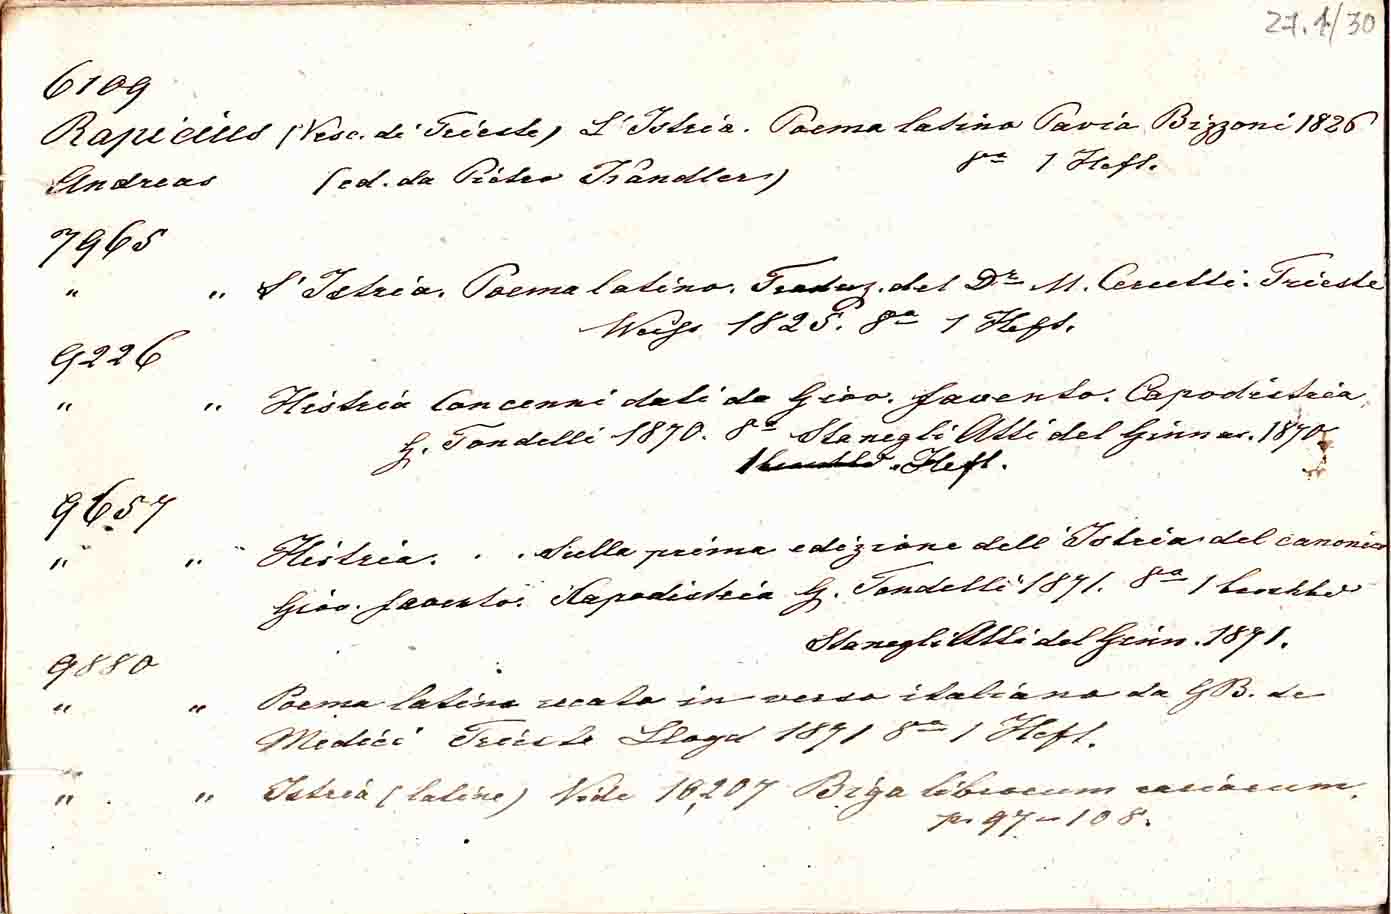 27.1/30
6109
Rapicius (Vesc. di Trieste) L'Istria. Poema latino Pavia Bizzoni 1826
Andreas (ed. da Pietro Kandler) 8ᵒ 1 Heft.
7965
" " L'Istria. Poema latino. Traduz. del Dr M. Cercetti. Trieste
Weiss 1825. 8ᵒ 1 Heft.
9226
" " Histria Concenni dati da Giov. favento. Capodistria
G. Tondelli 1870. 8ᵒ Sta negli Atti del Ginnas. 1870
1 Heft.
9657
" " Histria. . . Sulla prima edizione dell'Istria del canonico
Giov. favento. Kapodistria G. Tondelli 1871. 8ᵒ 1
Sta negli Atti del Ginn. 1871.
9880
" " Poema latino recato in verso italiano da GB. de
Medici Trieste Lloyd 1871 8ᵒ 1 Heft.
" . " Istria (latine) Vide 16,207 Biga librorum rariorum.
p. 97-108.